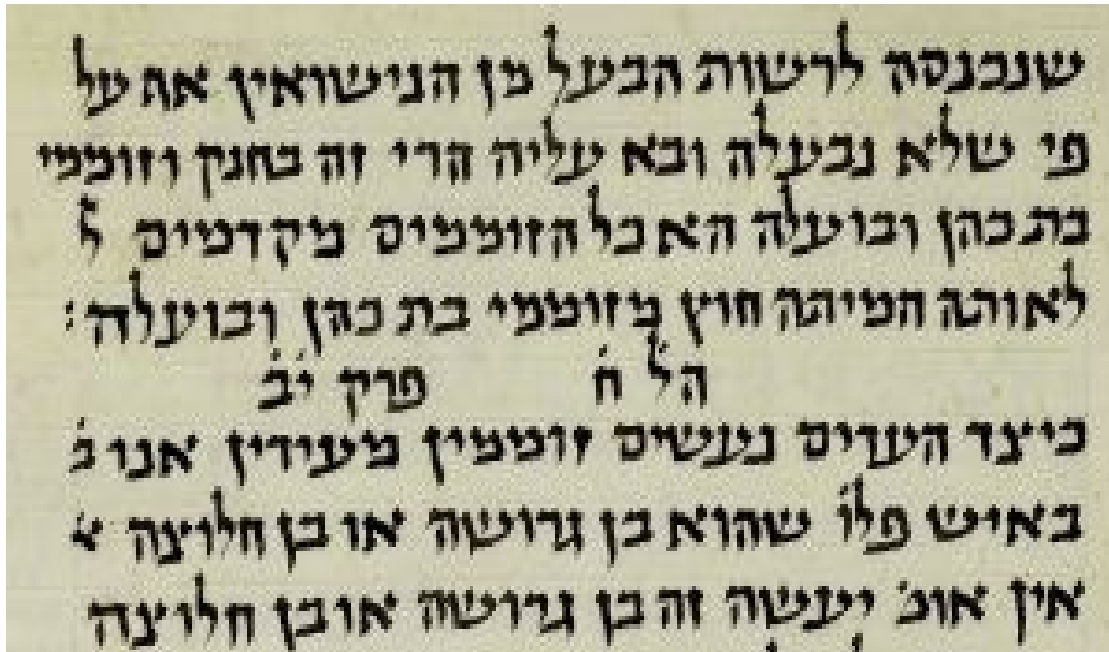 שנכנסה לרשות הבעל מן הנישואין אף על
פי שלא נבעלה ובא עליה הרי זה בחנק וזוממי
בת כהן ובועלה האכל הזוממים מקדמים ל
לאותה המיתה חוץ מזוממי בת כהן ובועלה:
הל' ח' פרק י'ב'
כיצד העדים נעשים זוממין מעידין אנו ב'
באיש פלו' שהוא בן גרושה או בן חלוצה א
אין אומ' יעשה זה בן גרושה או בן חלוצה